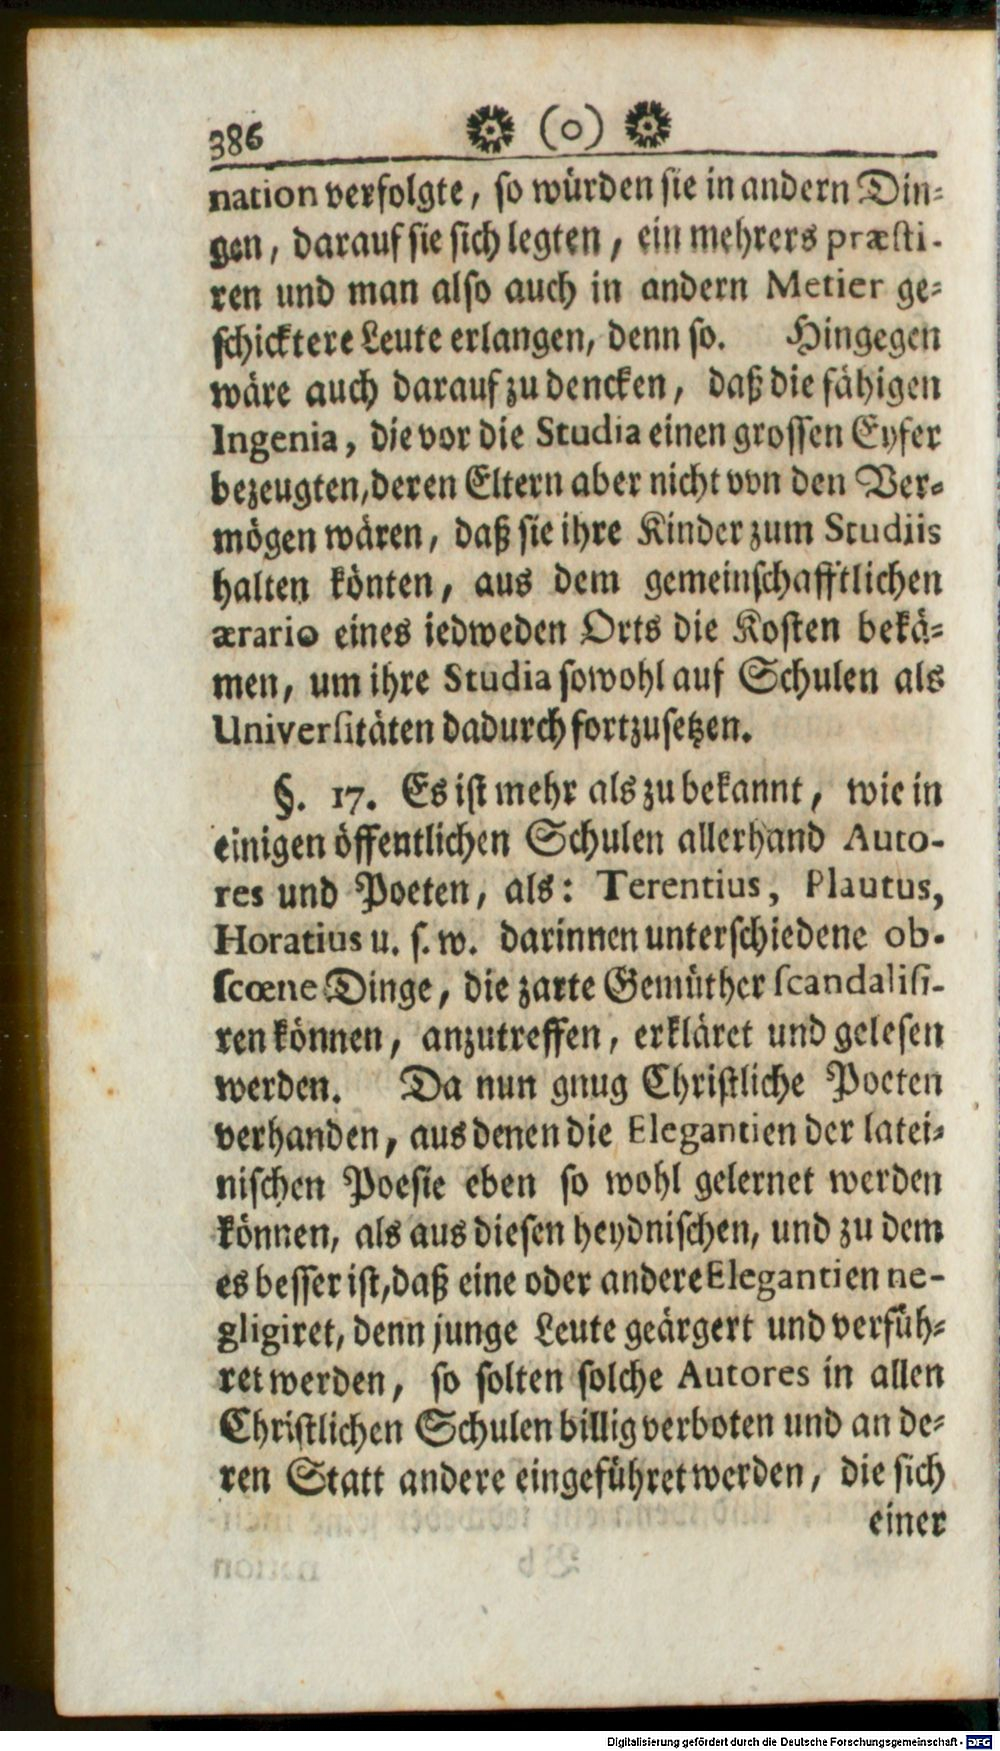 386 (o)
nation verfolgte, so würden sie in andern Din-
gen, darauf sie sich legten, ein mehrers præsti-
ren und man also auch in andern Metier ge-
schicktere Leute erlangen, denn so. Hingegen
wäre auch darauf zu dencken, daß die fähigen
Ingenia, die vor die Studia einen grossen Eyfer
bezeugten, deren Eltern aber nicht von den Ver-
mögen wären, daß sie ihre Kinder zum Studiis
halten könten, aus dem gemeinschafftlichen
ærario eines iedweden Orts die Kosten bekä-
men, um ihre Studia sowohl auf Schulen als
Universitäten dadurch fortzusetzen.
§. 17. Es ist mehr als zu bekannt, wie in
einigen öffentlichen Schulen allerhand Auto-
res und Poeten, als: Terentius, Plautus,
Horatius u. s. w. darinnen unterschiedene ob-
scœne Dinge, die zarte Gemüther scandalisi-
ren können, anzutreffen, erkläret und gelesen
werden. Da nun gnug Christliche Poeten
verhanden, aus denen die Elegantien der latei-
nischen Poesie eben so wohl gelernet werden
können, als aus diesen heydnischen, und zu dem
es besser ist, daß eine oder andere Elegantien ne-
gligiret, denn junge Leute geärgert und verfüh-
ret werden, so solten solche Autores in allen
Christlichen Schulen billig verboten und an de-
ren Statt andere eingeführet werden, die sich
einer
Digitalisierung gefördert durch die Deutsche Forschungsgemeinschaft - DFG